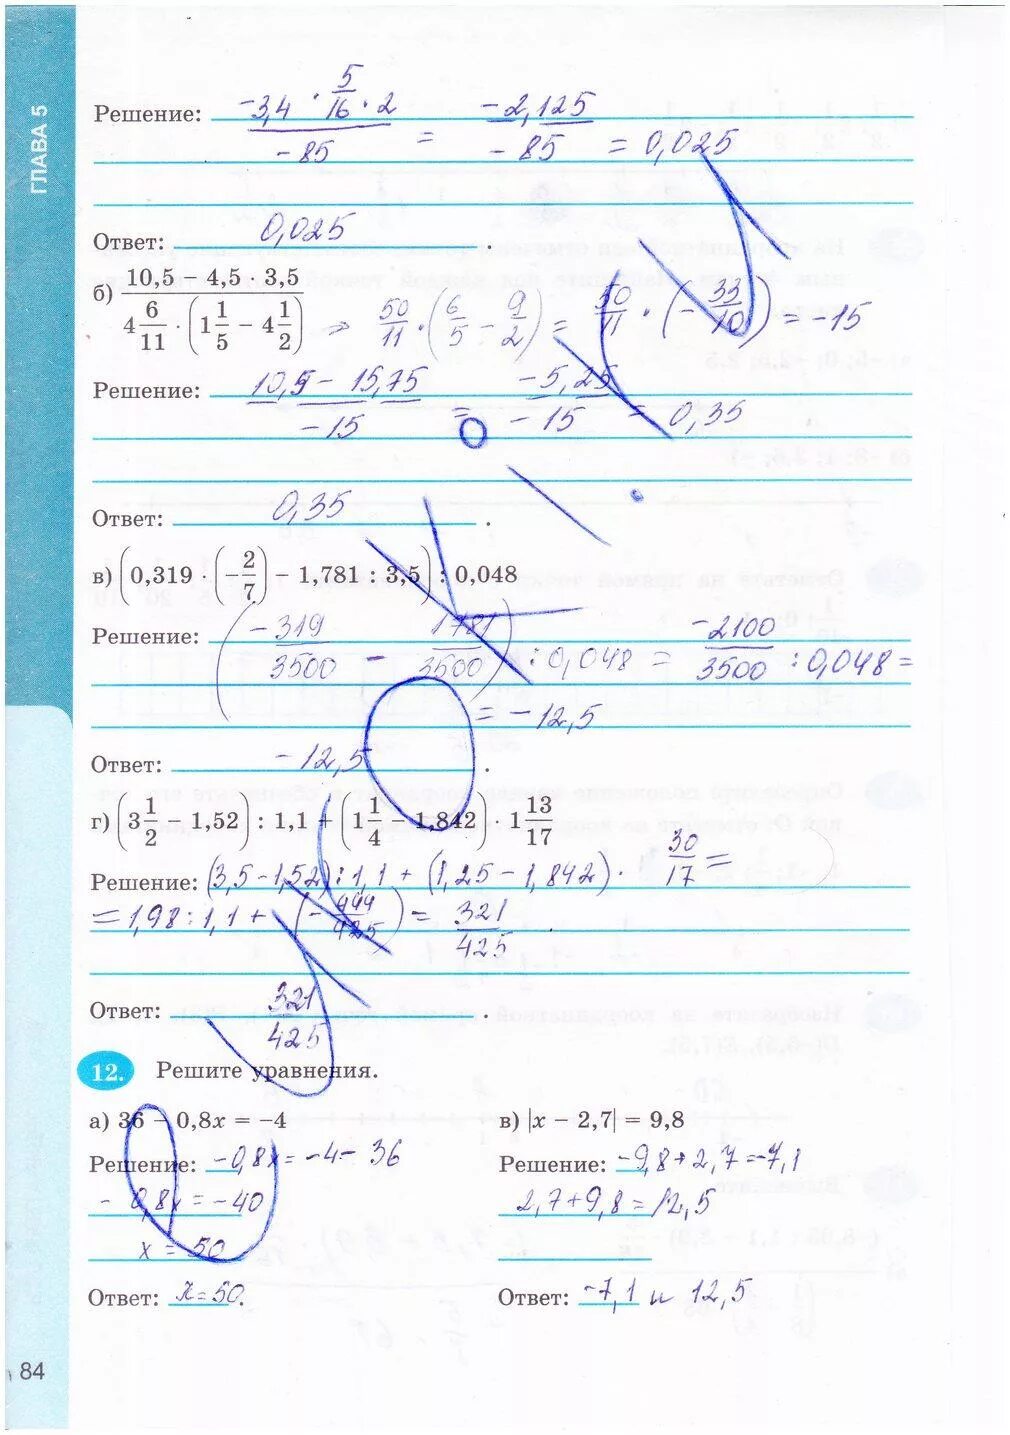 ГЛАВА 5
Решение: (-3,4 · 5/16 · 2)/(-85) = (-2,125)/(-85) = 0,025
Ответ: 0,025.
б) (10,5 − 4,5 · 3,5)/(4 6/11 · (1 1/5 − 4 1/2)) => 50/11 · (6/5 − 9/2) = 50/11 · (− 33/10) = −15
Решение: (10,5 − 15,75)/(−15) = (−5,25)/(−15) = 0,35
Ответ: 0,35.
в) (0,319 · (−2/7) − 1,781 : 3,5) : 0,048
Решение: (−319/3500 − 1781/3500) : 0,048 = −2100/3500 : 0,048 =
= −12,5
Ответ: −12,5.
г) (3 1/2 − 1,52) : 1,1 + (1 1/4 − 1,842) · 1 13/17
Решение: (3,5−1,52) : 1,1 + (1,25−1,842) · 30/17 =
= 1,98 : 1,1 + (−444/425) = 321/425.
Ответ: 321/425.
12. Решите уравнения.
а) 36 − 0,8x = −4
Решение: −0,8x = −4 − 36
− 0,8x = −40
x = 50
Ответ: x = 50.
в) |x − 2,7| = 9,8
Решение: −9,8 + 2,7 = −7,1
2,7 + 9,8 = 12,5
Ответ: −7,1 и 12,5
84